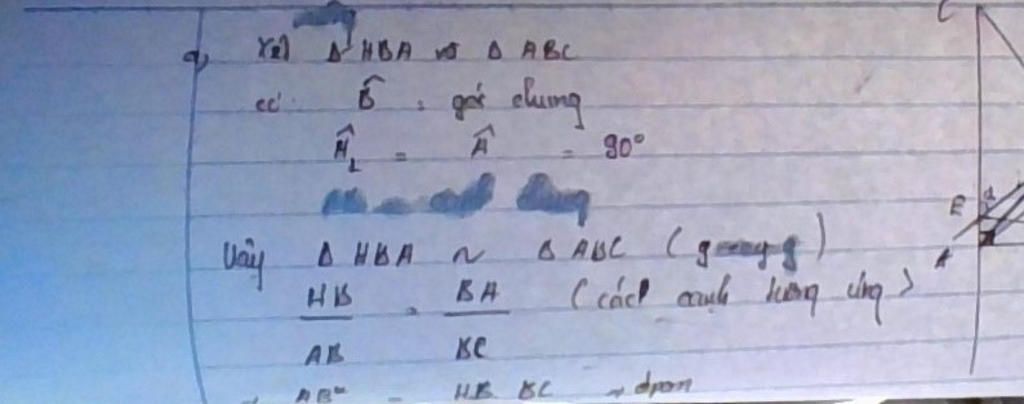 a, Xét Δ HBA và Δ ABC C
có: B̂ : góc chung
Ĥ₁ = Â = 90°
E
Vậy Δ HBA ~ Δ ABC (g g) A
HB = BA (các cạnh tương ứng)
AB BC
AB² = HB BC → đpcm